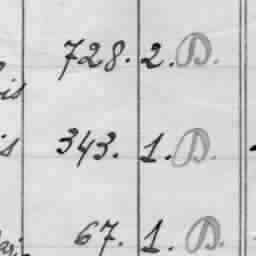 728. 2. D.
is
is 343. 1. D.
67. 1. D.